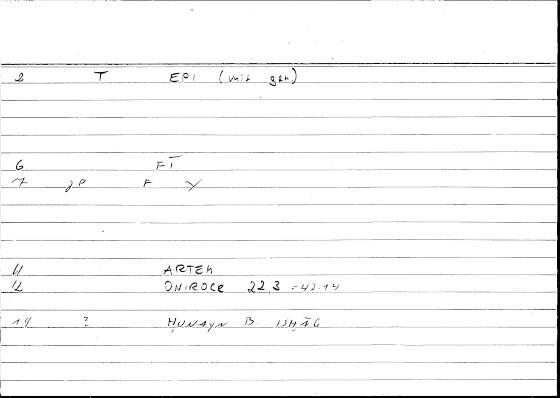 2 T EPI (mit gen)
6 FT
7 gP F Y
11 ARTEM
12 ONIROCR 22,3 - 42.14
14 ? ḤUNAYN B ISḤĀQ